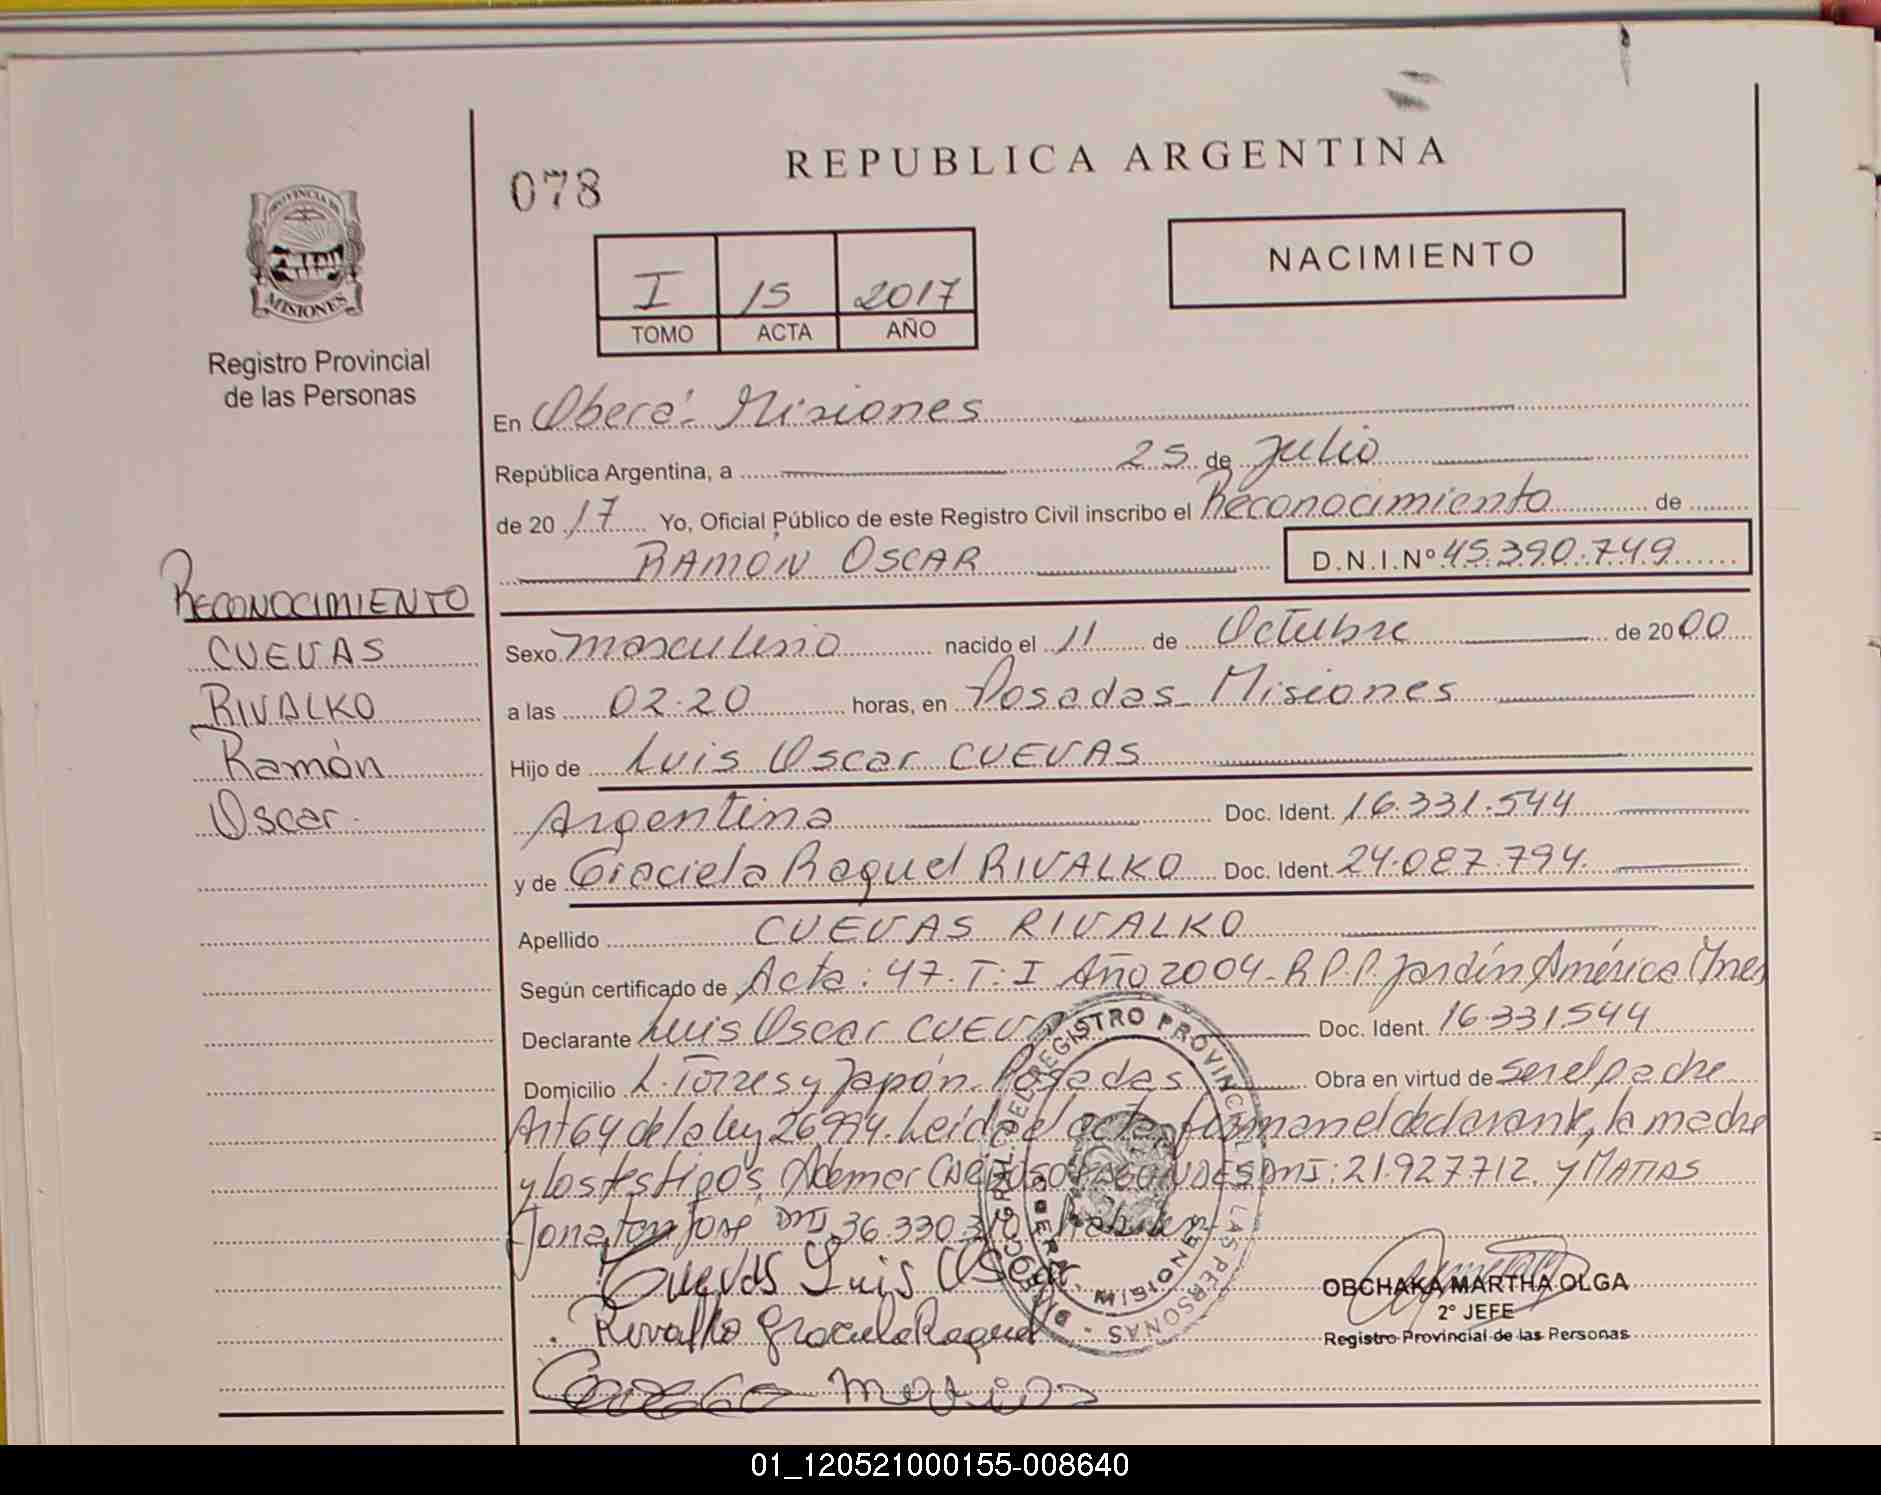 REPUBLICA ARGENTINA
078
NACIMIENTO
PROVINCIA DE
MISIONES
I 15 2017
TOMO ACTA AÑO
Registro Provincial
de las Personas
En Oberá - Misiones
República Argentina, a 25 de Julio
de 2017 Yo, Oficial Público de este Registro Civil inscribo el Reconocimiento de
RAMÓN OSCAR D.N.I.Nº 45.390.749
RECONOCIMIENTO
CUEVAS
RIVALKO
Ramón
Oscar.
Sexo masculino nacido el 11 de Octubre de 2000
a las 02:20 horas, en Posadas - Misiones
Hijo de Luis Oscar CUEVAS
Argentina Doc. Ident. 16.331.544
y de Graciela Raquel RIVALKO Doc. Ident. 24.087.794
Apellido CUEVAS RIVALKO
Según certificado de Acta: 47. T: I Año 2004 - R.P.P. Jardín América (Mnes)
Declarante Luis Oscar CUEVAS Doc. Ident. 16.331544
Domicilio L. Torres y Japón - Posadas Obra en virtud de ser el padre
Art 64 de la ley 26994. Leída el acta, firman el declarante, la madre
y los testigos, Ademar DNI: 21.927712. y MATIAS
Jonatan José DNI 36.330.310
Cuevas Luis Oscar
Rivalko Graciela Raquel
Matias
DIRECC. GRAL. DEL REGISTRO PROVINCIAL DE LAS PERSONAS
OBERA - MISIONES
OBCHAKA MARTHA OLGA
2° JEFE
Registro Provincial de las Personas
01_120521000155-008640